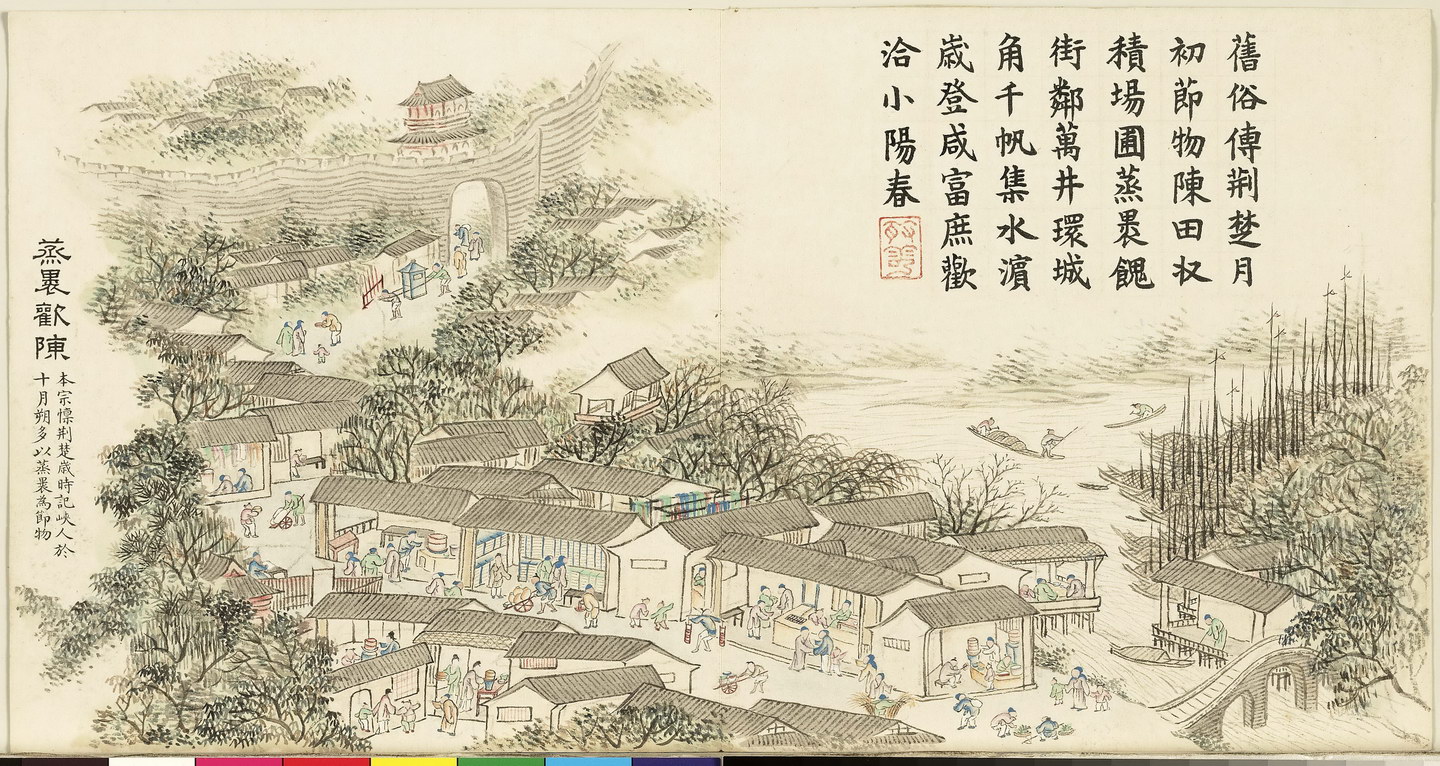 舊俗傳荆楚月
初節物陳田収
積場圃蒸褁餽
街鄰萬井環城
角千帆集水濱
歳登咸富庶歡
洽小陽春
蒸褁歡陳
本宗懔荆楚歳時記峽人於
十月朔多以蒸褁為節物